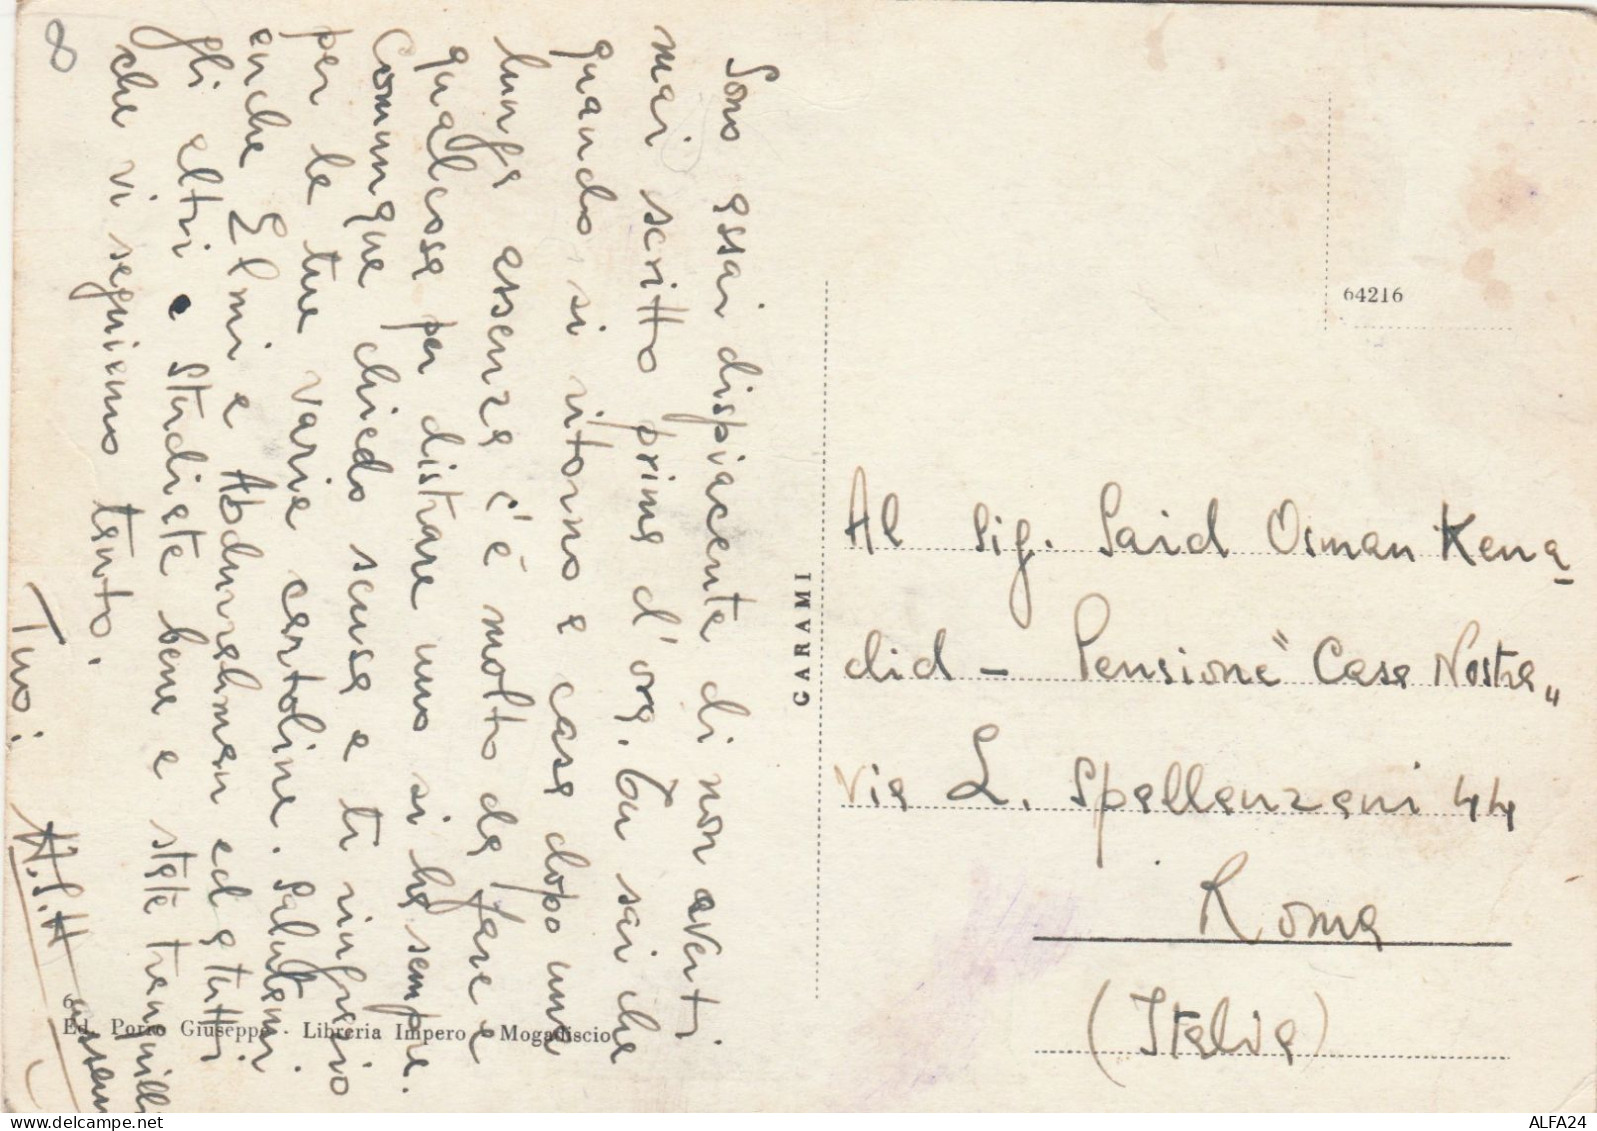 8
Sono assai dispiacente di non averti
mai scritto prima d'ora. Tu sai che
quando si ritorna a casa dopo una
lunga assenza c'è molto da fare e
qualcosa per distrare uno si ha sempre.
Comunque chiedo scusa e ti ringrazio
per le tue varie cartoline. Salutami
anche Elmi e Abdurrahman ed a tutti
gli altri e studiate bene e state tranquilli
che vi seguiamo tanto.
Tuo:
CARAMI
64216
Al Sig. Said Osman Kena-
did - Pensione "Casa Nostra"
via L. Spallanzani 44
Roma
(Italia)
Ed. Porro Giuseppe - Libreria Impero - Mogadiscio
ALFA24